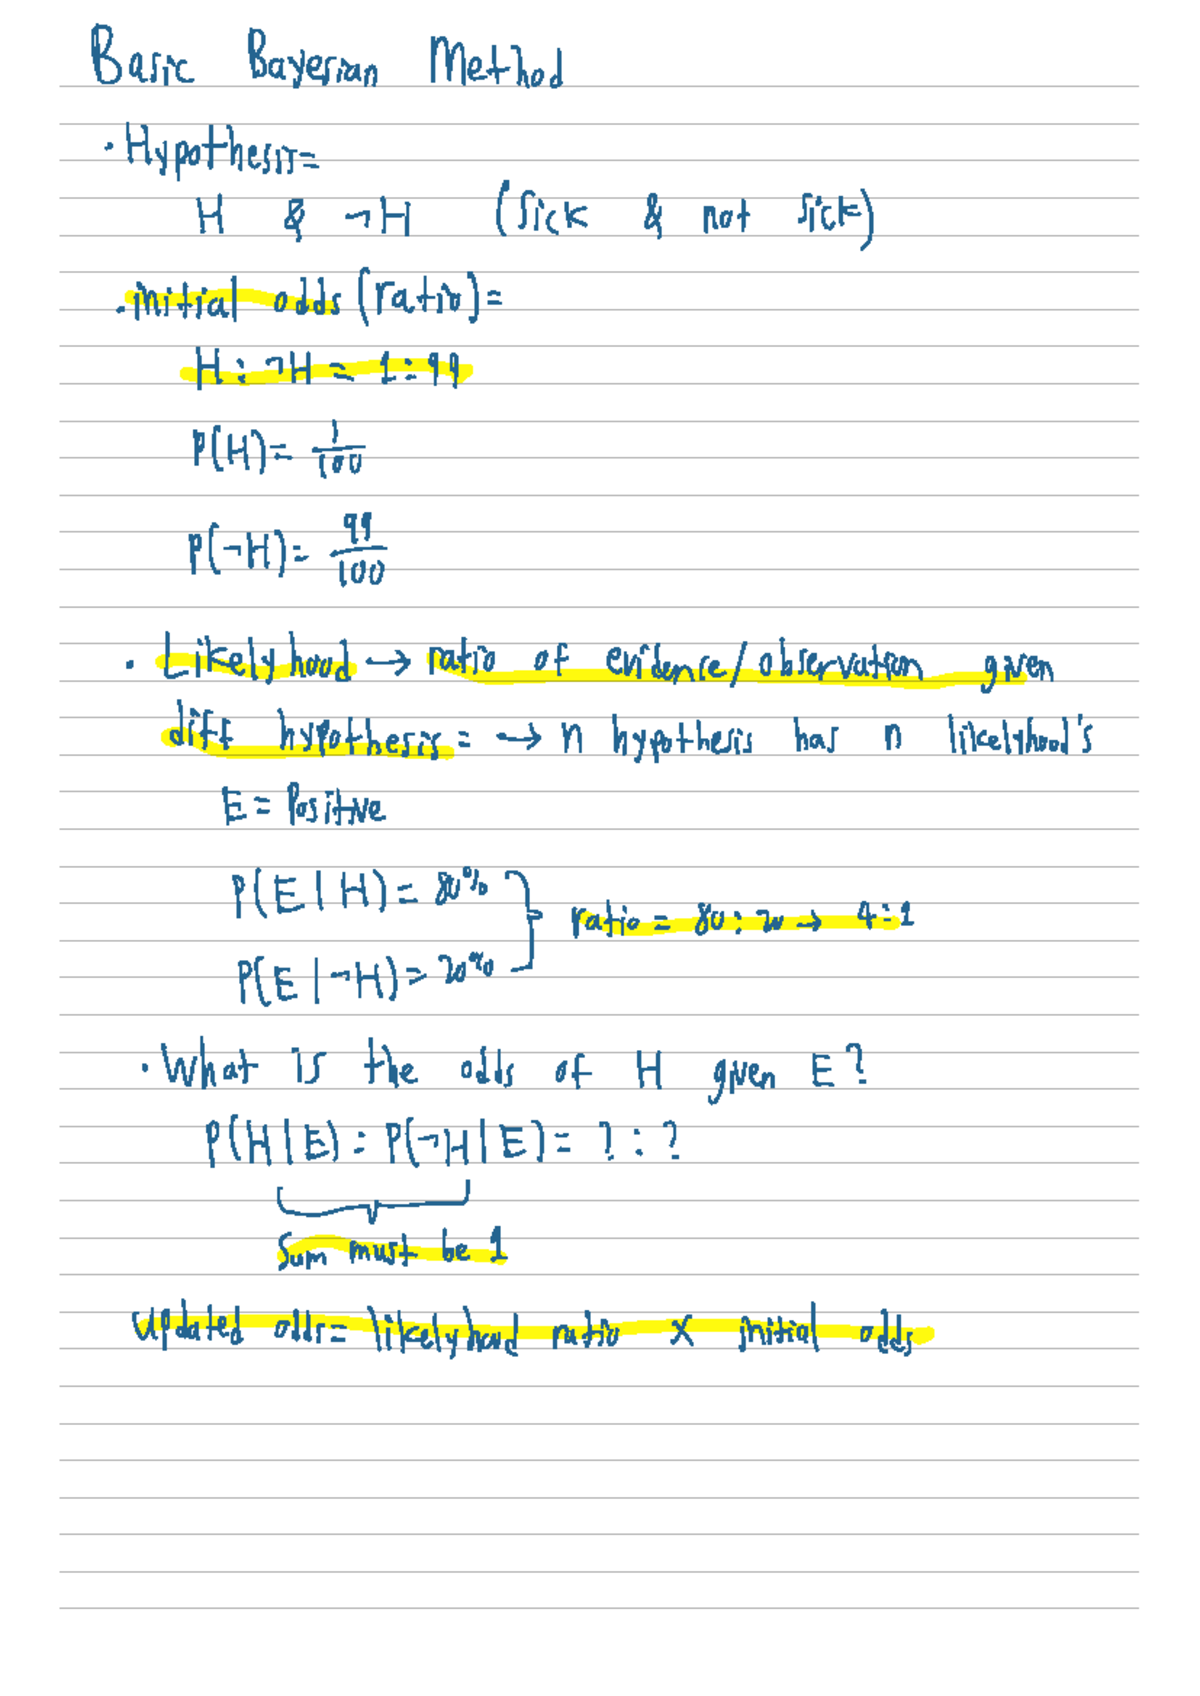 Basic Bayesian Method
· Hypothesis =
H & ¬H (Sick & not sick)
. initial odds (ratio) =
H : ¬H = 1 : 99
P(H) = 1/100
P(¬H) = 99/100
· Likelyhood → ratio of evidence/observation given
diff hypothesis = → n hypothesis has n likelyhood's
E = Positive
P(E | H) = 80%
ratio = 80 : 20 → 4 : 1
P(E | ¬H) = 20%
· What is the odds of H given E?
P(H | E) : P(¬H | E) = ? : ?
Sum must be 1
updated odds = likelyhood ratio X initial odds